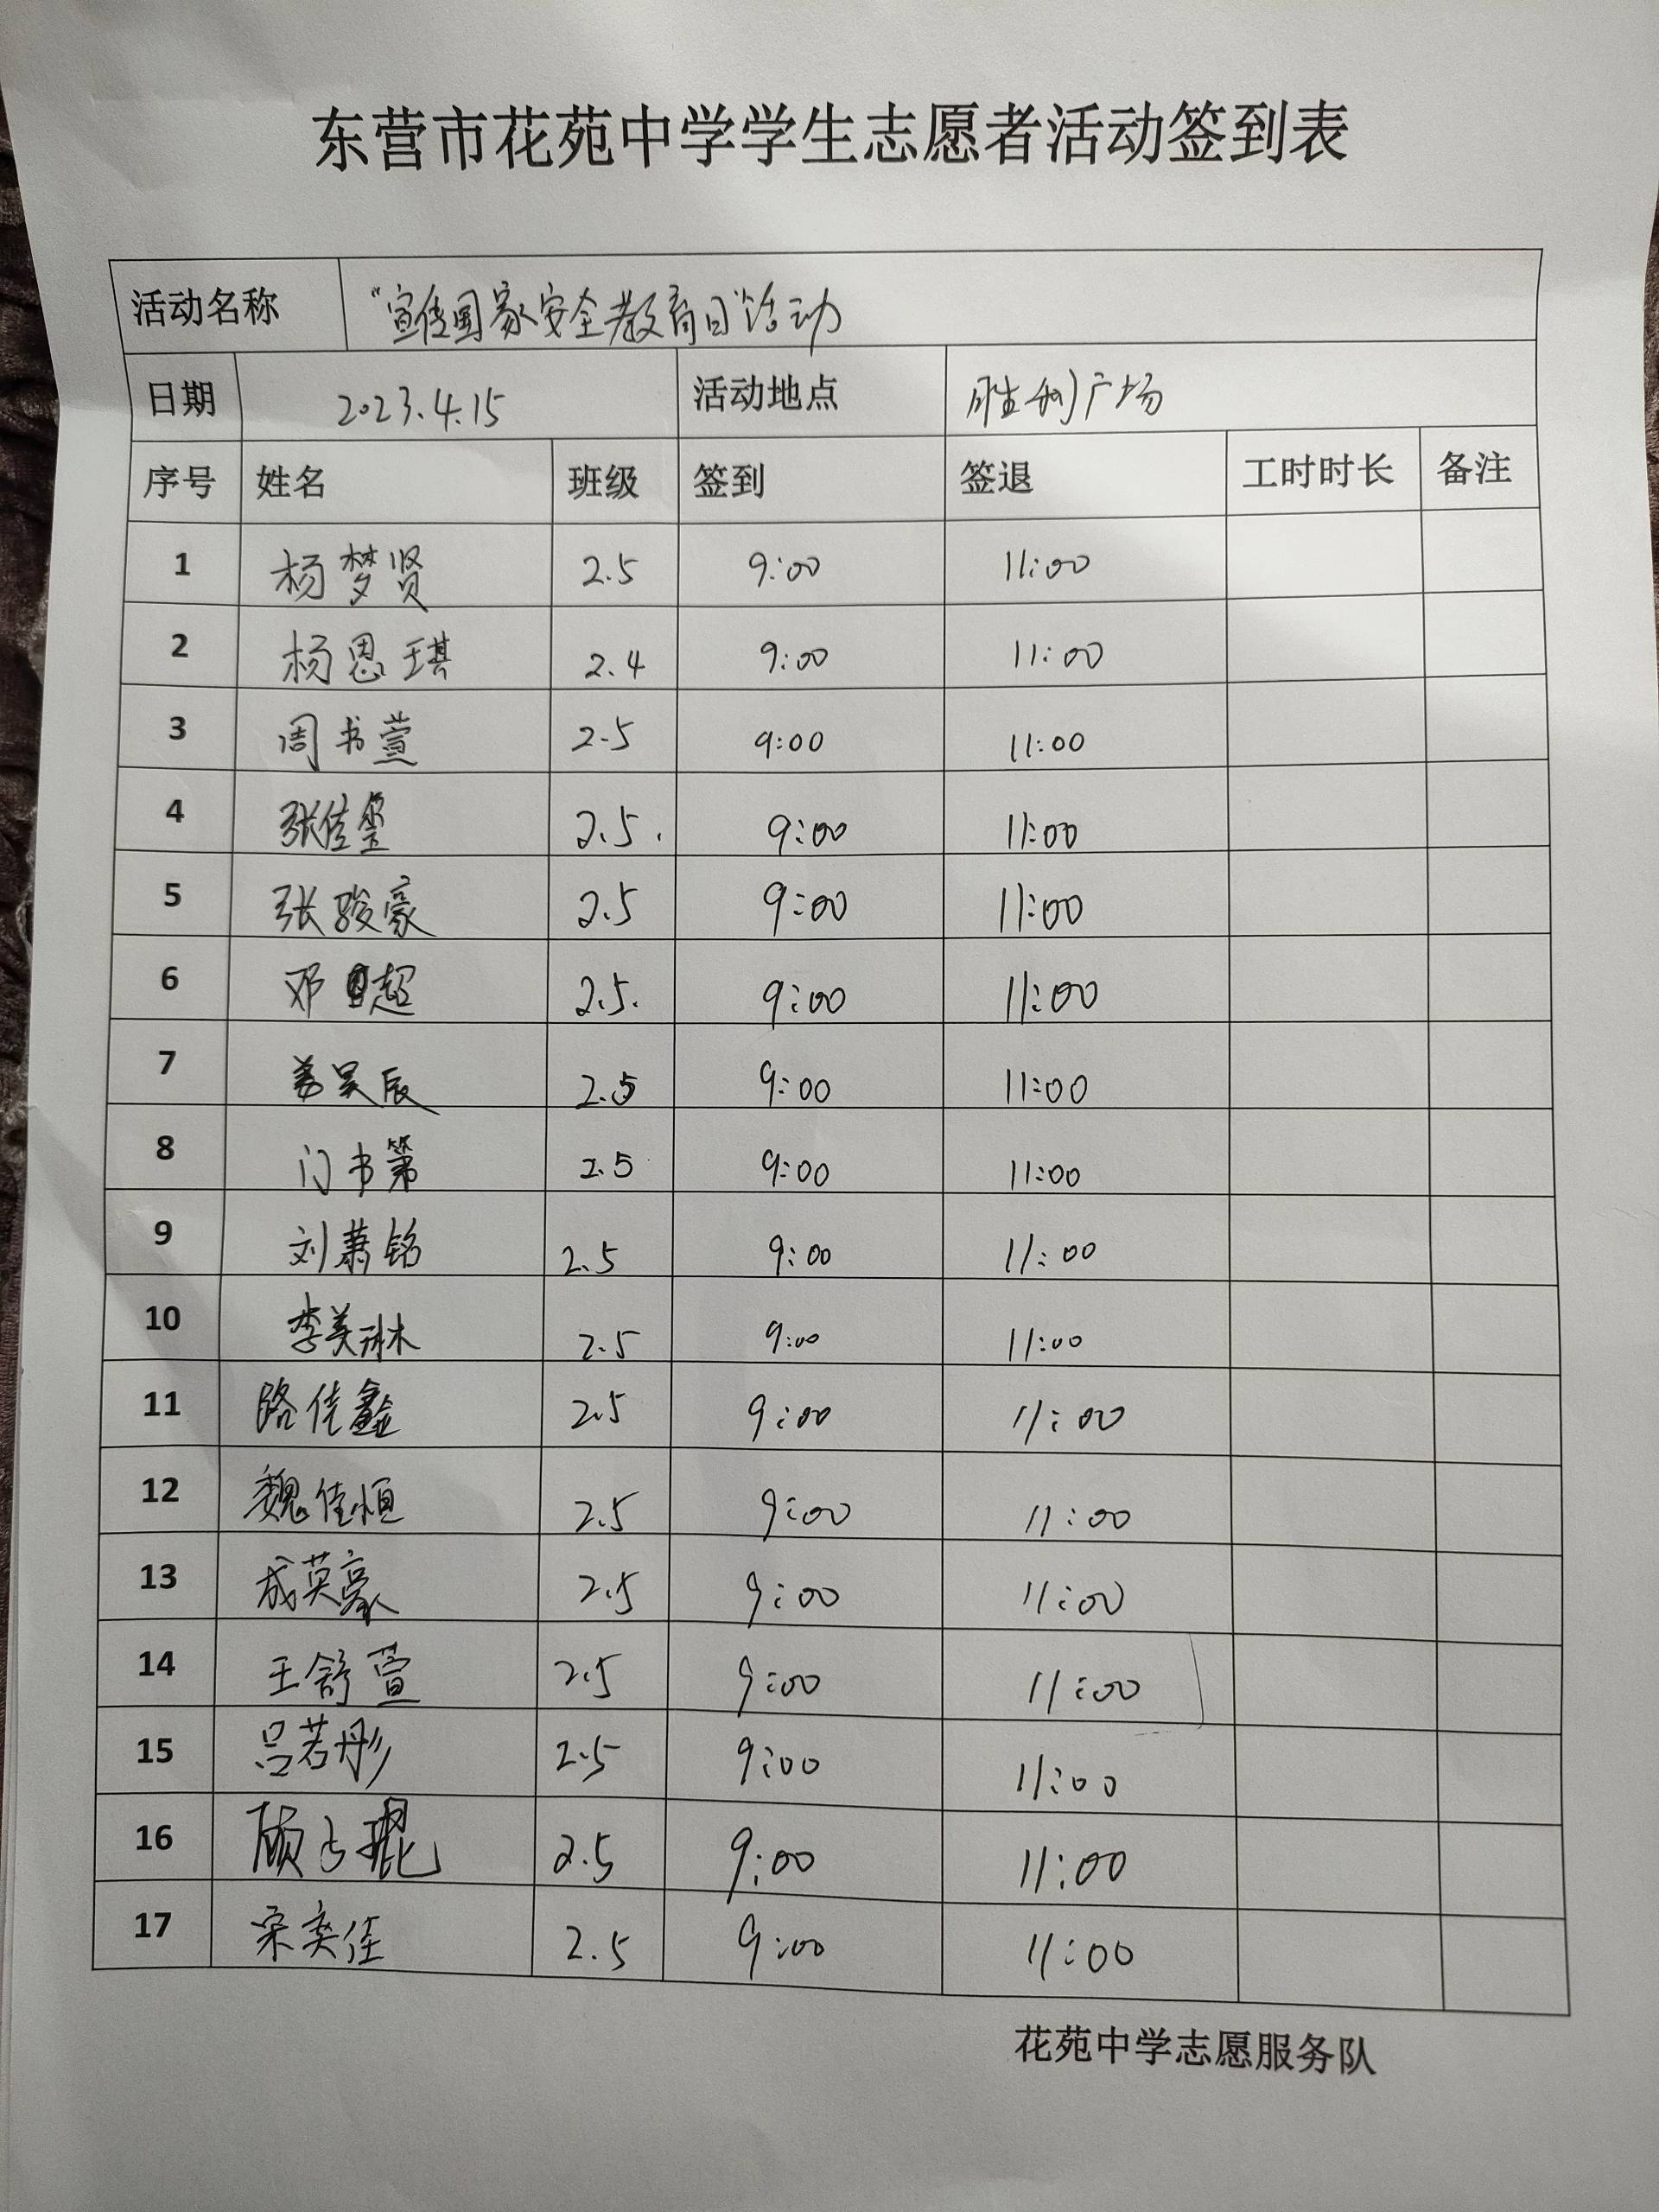 东营市花苑中学学生志愿者活动签到表
活动名称 "宣传国家安全教育日"活动
日期 2023.4.15 活动地点 胜利广场
序号 姓名 班级 签到 签退 工时时长 备注
1 杨梦贤 2.5 9:00 11:00
2 杨恩琪 2.4 9:00 11:00
3 周书萱 2.5 9:00 11:00
4 张佳玺 2.5. 9:00 11:00
5 张骏豪 2.5 9:00 11:00
6 邓超 2.5. 9:00 11:00
7 姜昊辰 2.5 9:00 11:00
8 门书第 2.5 9:00 11:00
9 刘萧铭 2.5 9:00 11:00
10 李美琳 2.5 9:00 11:00
11 路佳鑫 2.5 9:00 11:00
12 魏佳恒 2.5 9:00 11:00
13 成英豪 2.5 9:00 11:00
14 王舒萱 2.5 9:00 11:00
15 吕若彤 2.5 9:00 11:00
16 2.5 9:00 11:00
17 宋奕佳 2.5 9:00 11:00
花苑中学志愿服务队